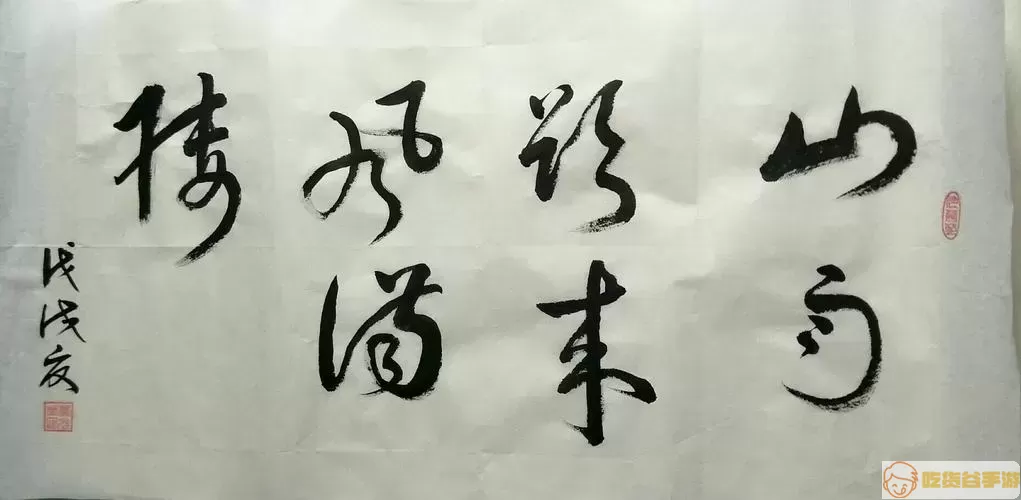 山雨
欲来
风满
楼
戊戌夏
吃货谷手游